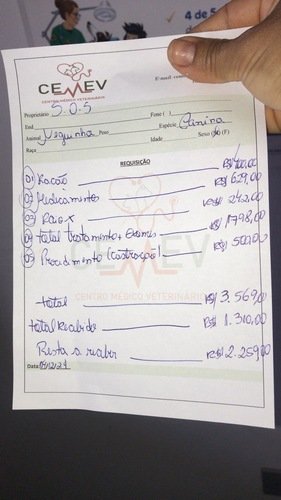 4 de 5
CEMEV
CENTRO MÉDICO VETERINÁRIO
E-mail: cemev
Proprietário S.O.S Fone ( )
End.
Animal Neguinha Peso Espécie Canina
Raça Idade Sexo (M) (F)
REQUISIÇÃO
01 Ração R$ 400,00
02 Medicamentos R$ 629,00
03 Raio X R$ 242,00
04 Total Tratamento + Exames R$ 1798,00
05 Procedimento (castração) R$ 500,00
CEMEV
CENTRO MÉDICO VETERINÁRIO
Total R$ 3.569,00
Total Recebido R$ 1.310,00
Resta a receber R$ 2.259,00
Data: